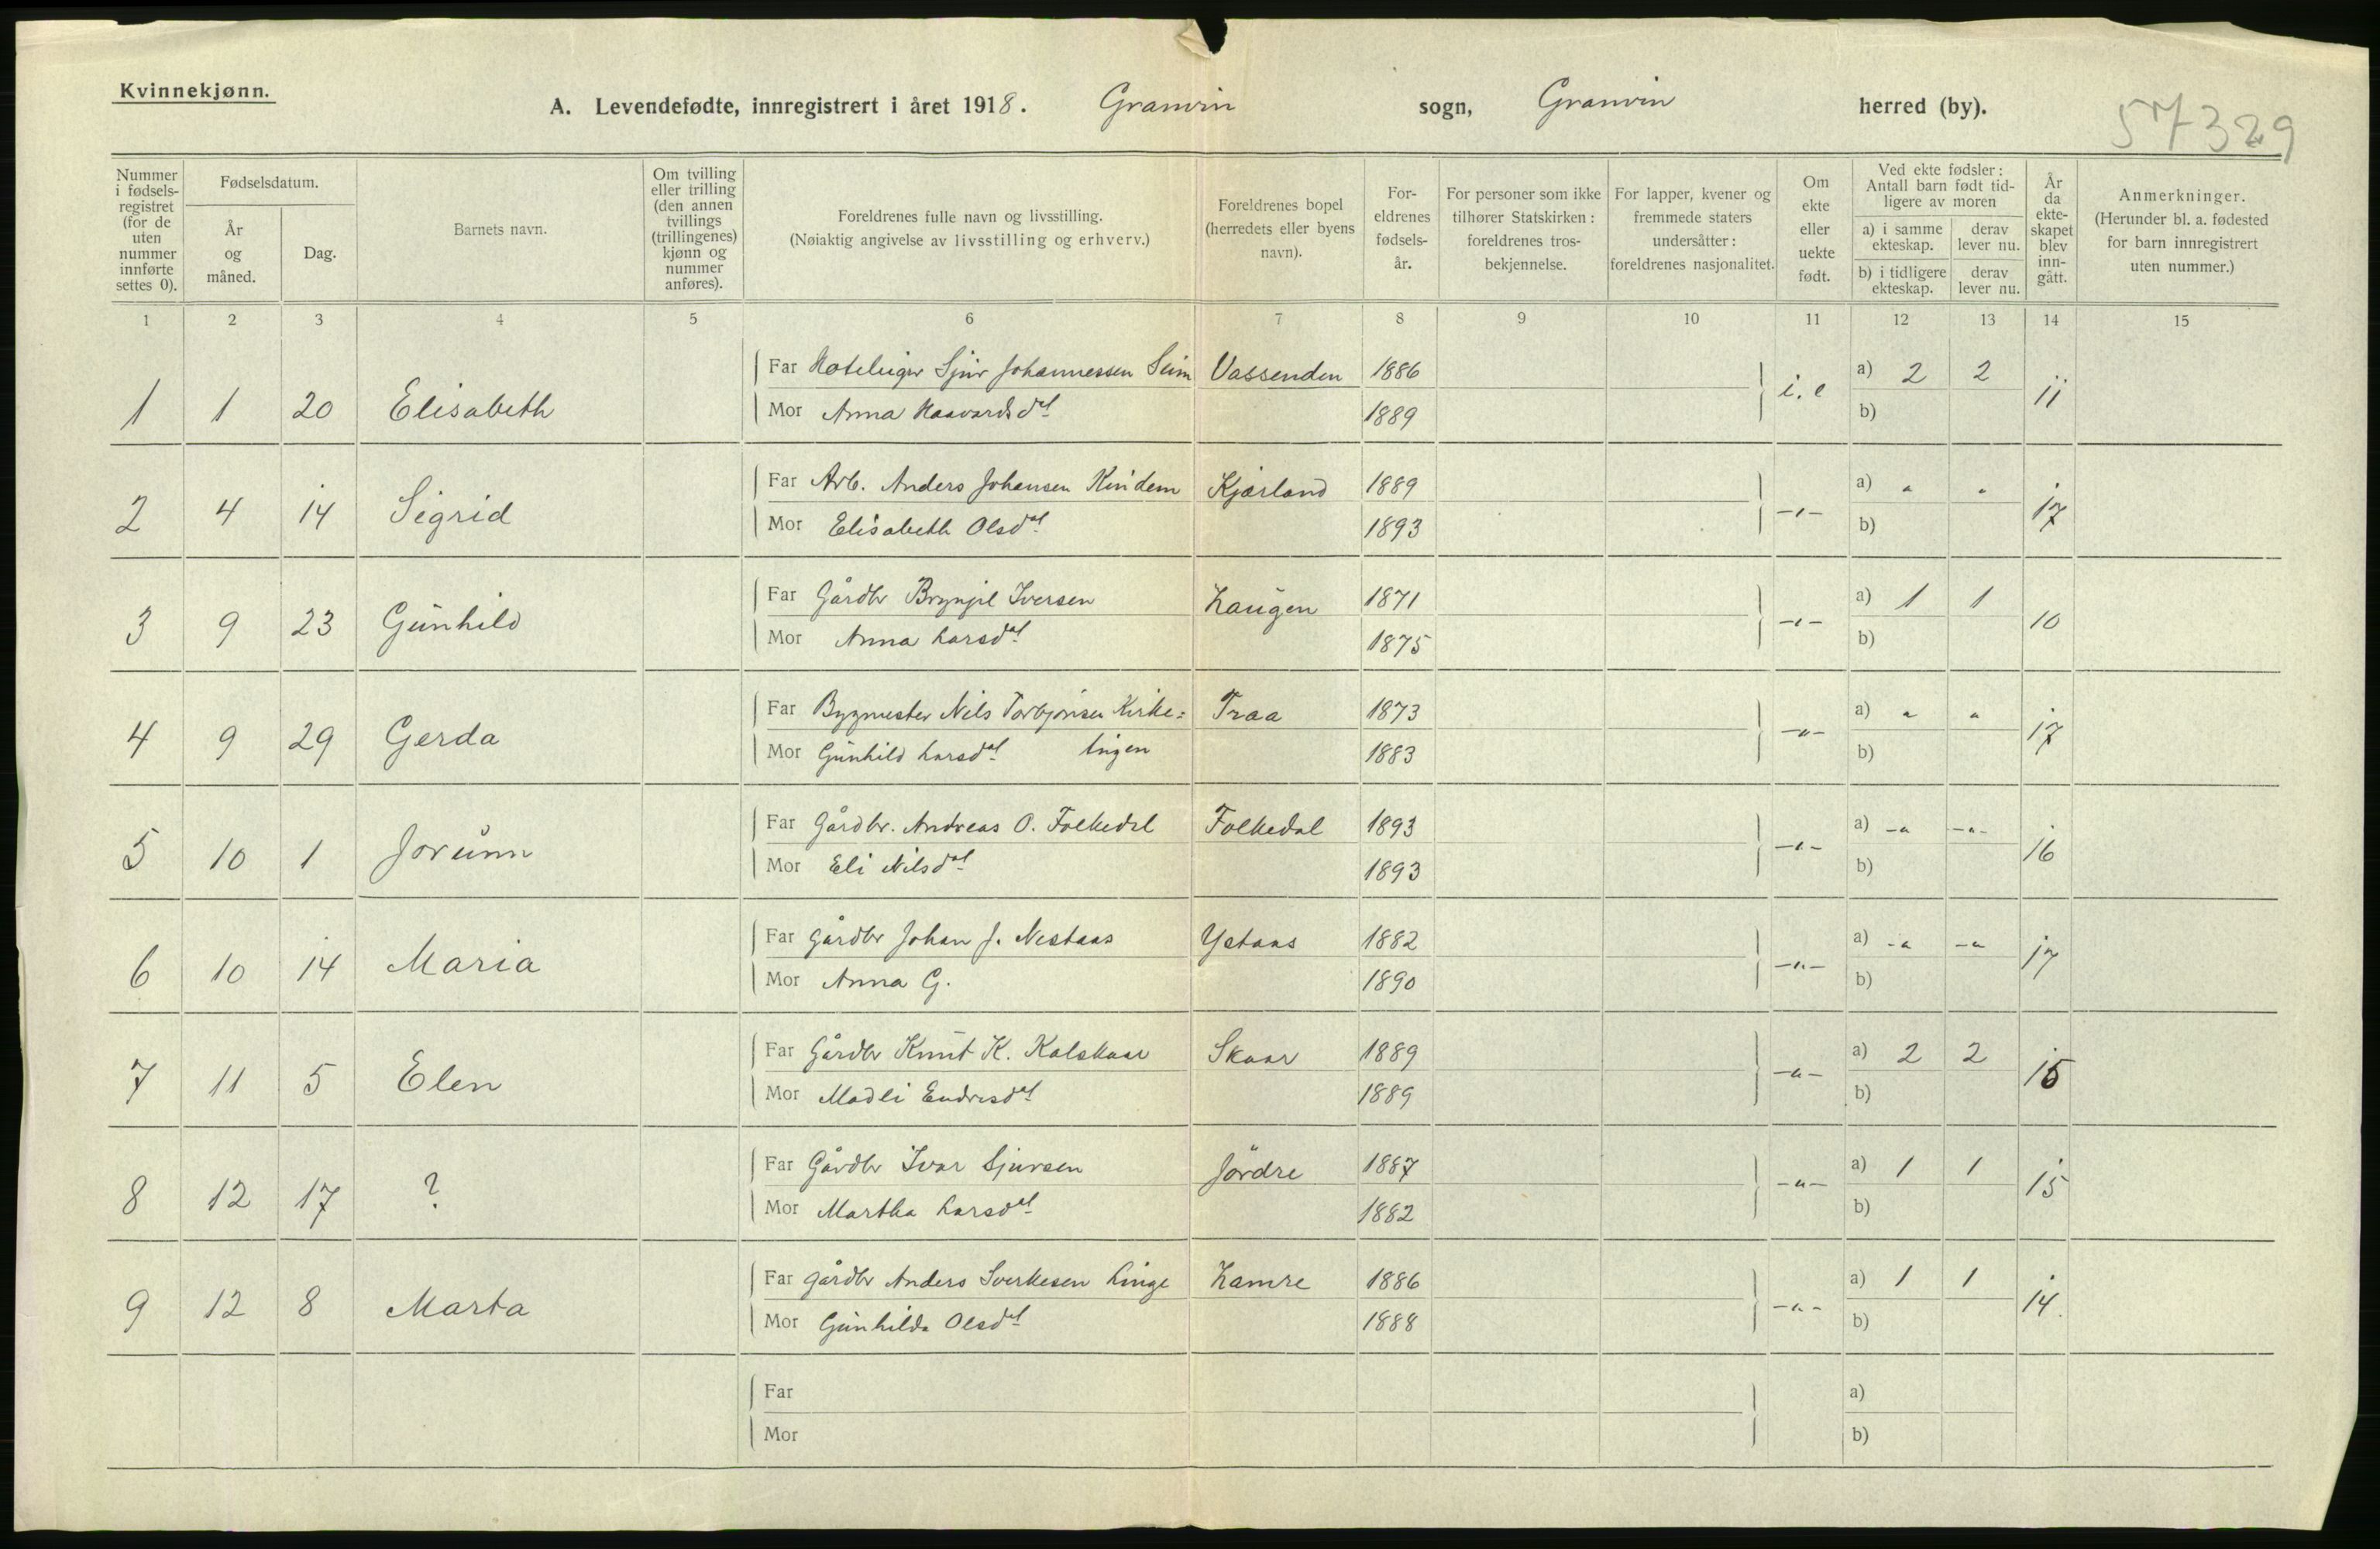 Kvinnekjønn.
A. Levendefødte, innregistrert i året 1918. Granvin sogn, Granvin herred (by).
57329
Nummer i fødsels-registret (for de uten nummer innførte settes 0).
Fødselsdatum.
År og måned.
Dag.
Barnets navn.
Om tvilling eller trilling (den annen tvillings (trillingenes) kjønn og nummer anføres).
Foreldrenes fulle navn og livsstilling.
(Nøiaktig angivelse av livsstilling og erhverv.)
Foreldrenes bopel (herredets eller byens navn).
For-eldrenes fødsels-år.
For personer som ikke tilhører Statskirken: foreldrenes tros-bekjennelse.
For lapper, kvener og fremmede staters undersåtter: foreldrenes nasjonalitet.
Om ekte eller uekte født.
Ved ekte fødsler: Antall barn født tid-ligere av moren
a) i samme ekteskap.
derav lever nu.
b) i tidligere ekteskap.
derav lever nu.
År da ekte-skapet blev inn-gått.
Anmerkninger.
(Herunder bl. a. fødested for barn innregistrert uten nummer.)
1 2 3 4 5 6 7 8 9 10 11 12 13 14 15
Far Hoteleiger Sjur Johannessen Seim Vassenden 1886 a) 2 2
1 1 20 Elisabeth i. e 11
Mor Anna Haavardsdat 1889 b)
Far Arb. Anders Johansen Kindem Kjærland 1889 a) " "
2 4 14 Sigrid -"- 17
Mor Elisabeth Olsdat 1893 b)
Far Gårdbr Brynjel Iversen Haugen 1871 a) 1 1
3 9 23 Gunhild -"- 10
Mor Anna Larsdat 1875 b)
Far Bygmester Nils Torbjørnsen Kirke= Traa 1873 a) " "
4 9 29 Gerda -"- 17
Mor Gunhild Larsdat tingen 1883 b)
Far Gårdbr. Andreas O. Folkedal Folkedal 1893 a) -" -"-
5 10 1 Jorunn -"- 16
Mor Eli Nilsdat 1893 b)
Far Gårdbr Johan J. Nestaas Ystaas 1882 a) -" -"
6 10 14 Maria -"- 17
Mor Anna G. 1890 b)
Far Gårdbr Knut K. Kolskaar Skaar 1889 a) 2 2
7 11 5 Elen -"- 15
Mor Madli Endresdat 1889 b)
Far Gårdbr Ivar Sjursen Jördre 1887 a) 1 1
8 12 17 ? -"- 15
Mor Martha Larsdat 1882 b)
Far Gårdbr Anders Sverkesen Linge Hamre 1886 a) 1 1
9 12 8 Marta -"- 14.
Mor Gunhilda Olsdat 1888 b)
Far a)
Mor b)